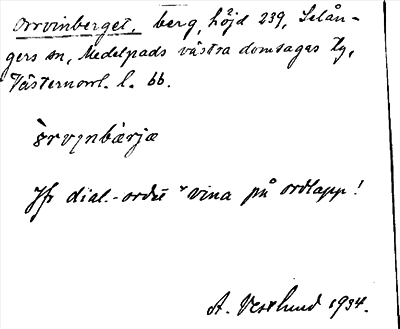 Orrvinberget, berg, höjd 239, Selån-
gers sn, Medelpads västra domsagas tg,
Västernorrl. l. bb.
òrvɩnbærjæ
Jfr dial.-ordet vina på ordlapp!
A. Vestlund 1934.